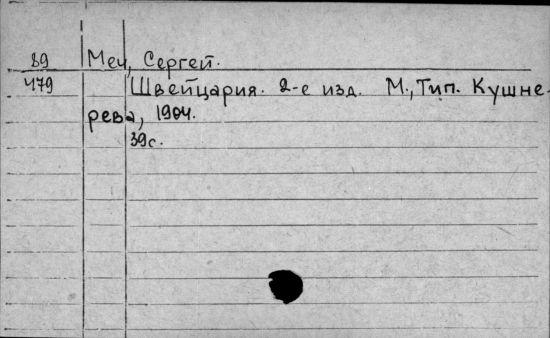 89 Меч, Сергей.
479 Швейцария. 2-е изд. М., Тип. Кушне-
рева, 1904.
39с.